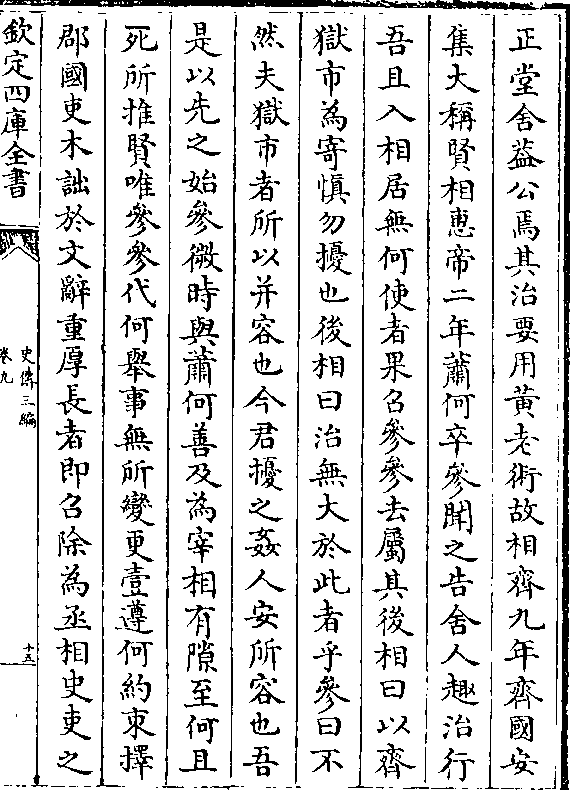 正堂舍葢公焉其治要用黄老術故相齊九年齊國安
集大稱賢相惠帝二年蕭何卒參聞之告舍人趣治行
吾且入相居無何使者果召參參去屬其後相曰以齊
獄市為寄慎勿擾也後相曰治無大於此者乎參曰不
然夫獄市者所以并容也今君擾之姦人安所容也吾
是以先之始參微時與蕭何善及為宰相有隙至何且
死所推賢唯參參代何舉事無所變更壹遵何約束擇
郡國吏木詘於文辭重厚長者即召除為丞相史吏之
欽定四庫全書
史傳三編
卷九
十五